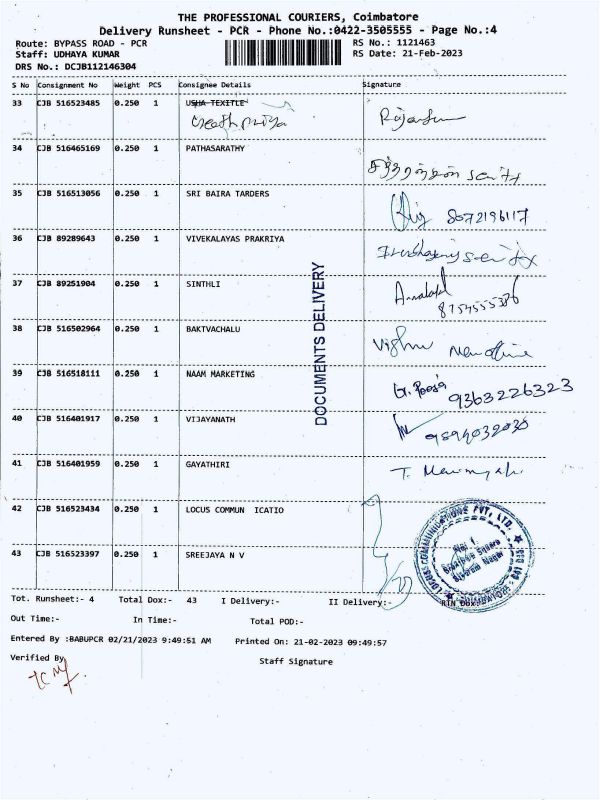 THE PROFESSIONAL COURIERS, Coimbatore
Delivery Runsheet - PCR - Phone No.:0422-3505555 - Page No.:4
Route: BYPASS ROAD - PCR
RS No.: 1121463
Staff: UDHAYA KUMAR
RS Date: 21-Feb-2023
DRS No.: DCJB112146304
S No Consignment No Weight PCS Consignee Details Signature
33 CJB 516523485 0.250 1 USHA TEXITLE
34 CJB 516465169 0.250 1 PATHASARATHY
35 CJB 516513056 0.250 1 SRI BAIRA TARDERS
8072196117
36 CJB 89289643 0.250 1 VIVEKALAYAS PRAKRIYA
37 CJB 89251904 0.250 1 SINTHLI
38 CJB 516502964 0.250 1 BAKTVACHALU
Vishnu
39 CJB 516518111 0.250 1 NAAM MARKETING
9363226323
40 CJB 516401917 0.250 1 VIJAYANATH
41 CJB 516401959 0.250 1 GAYATHIRI
42 CJB 516523434 0.250 1 LOCUS COMMUN ICATIO
43 CJB 516523397 0.250 1 SREEJAYA N V
DOCUMENTS DELIVERY
Tot. Runsheet:- 4 Total Dox:- 43 I Delivery:- II Delivery:- RTN Dox:
Out Time:- In Time:- Total POD:-
Entered By :BABUPCR 02/21/2023 9:49:51 AM Printed On: 21-02-2023 09:49:57
Verified By
Staff Signature